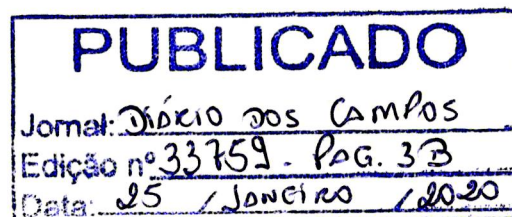 PUBLICADO
Jornal: DIÁRIO DOS CAMPOS
Edição nº 33759 - PÁG. 3B
Data: 25 / JANEIRO / 2020